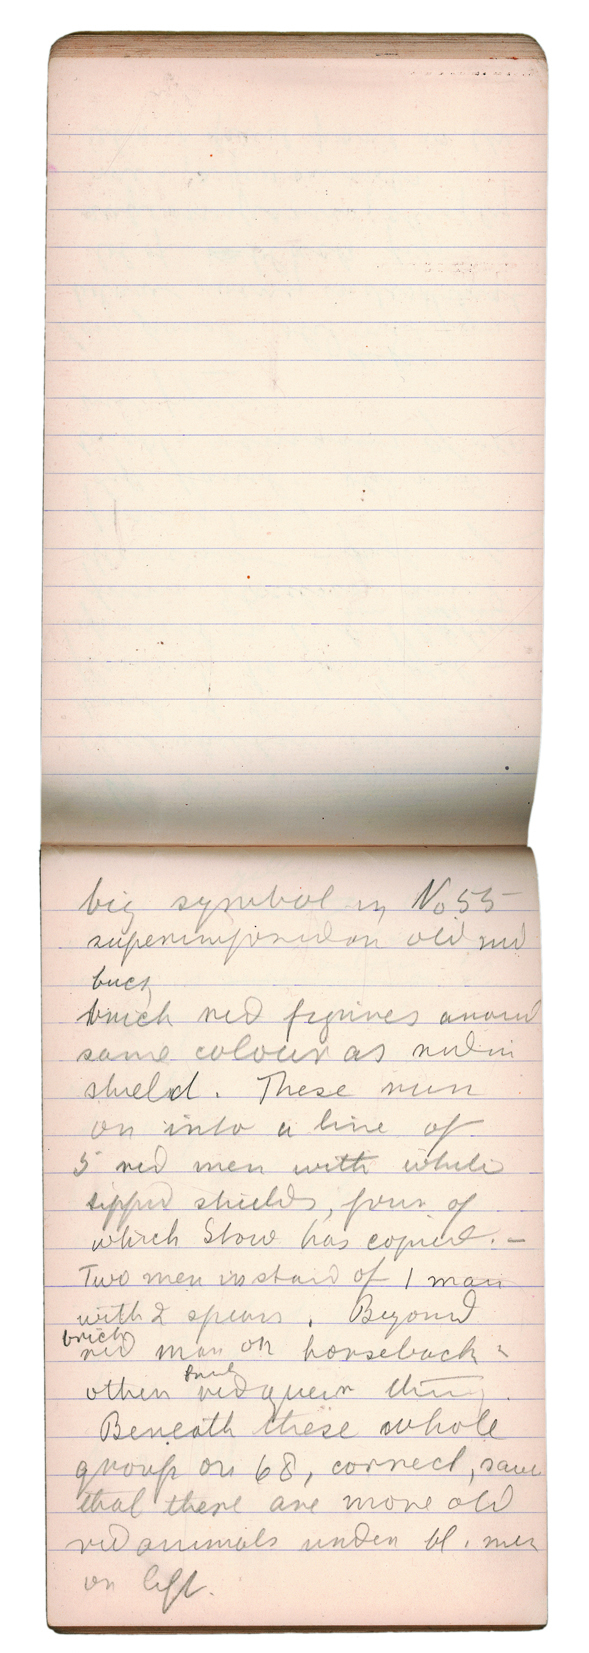 big symbol in No 55
superimposed on old red
buck
brick red figures around
same colour as red in
shield. These run
on into a line of
5 red men with white
tipped shields, four of
which Stow has copied. -
Two men instead of 1 man
with 2 spears. Beyond
brick
red man on horseback &
other red queer thing.
Beneath these whole
group on 68, correct, save
that there are more old
red animals under bl. men
on left.